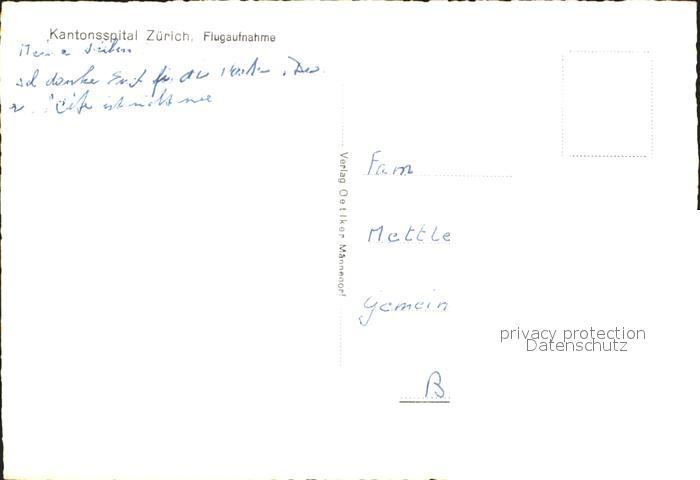 Kantonsspital Zürich, Flugaufnahme
Meine Lieben
ich danke Euch für die
ist nicht
Verlag Oetiker Männedorf
Fam
Mettle
Gemein
B
privacy protection
Datenschutz